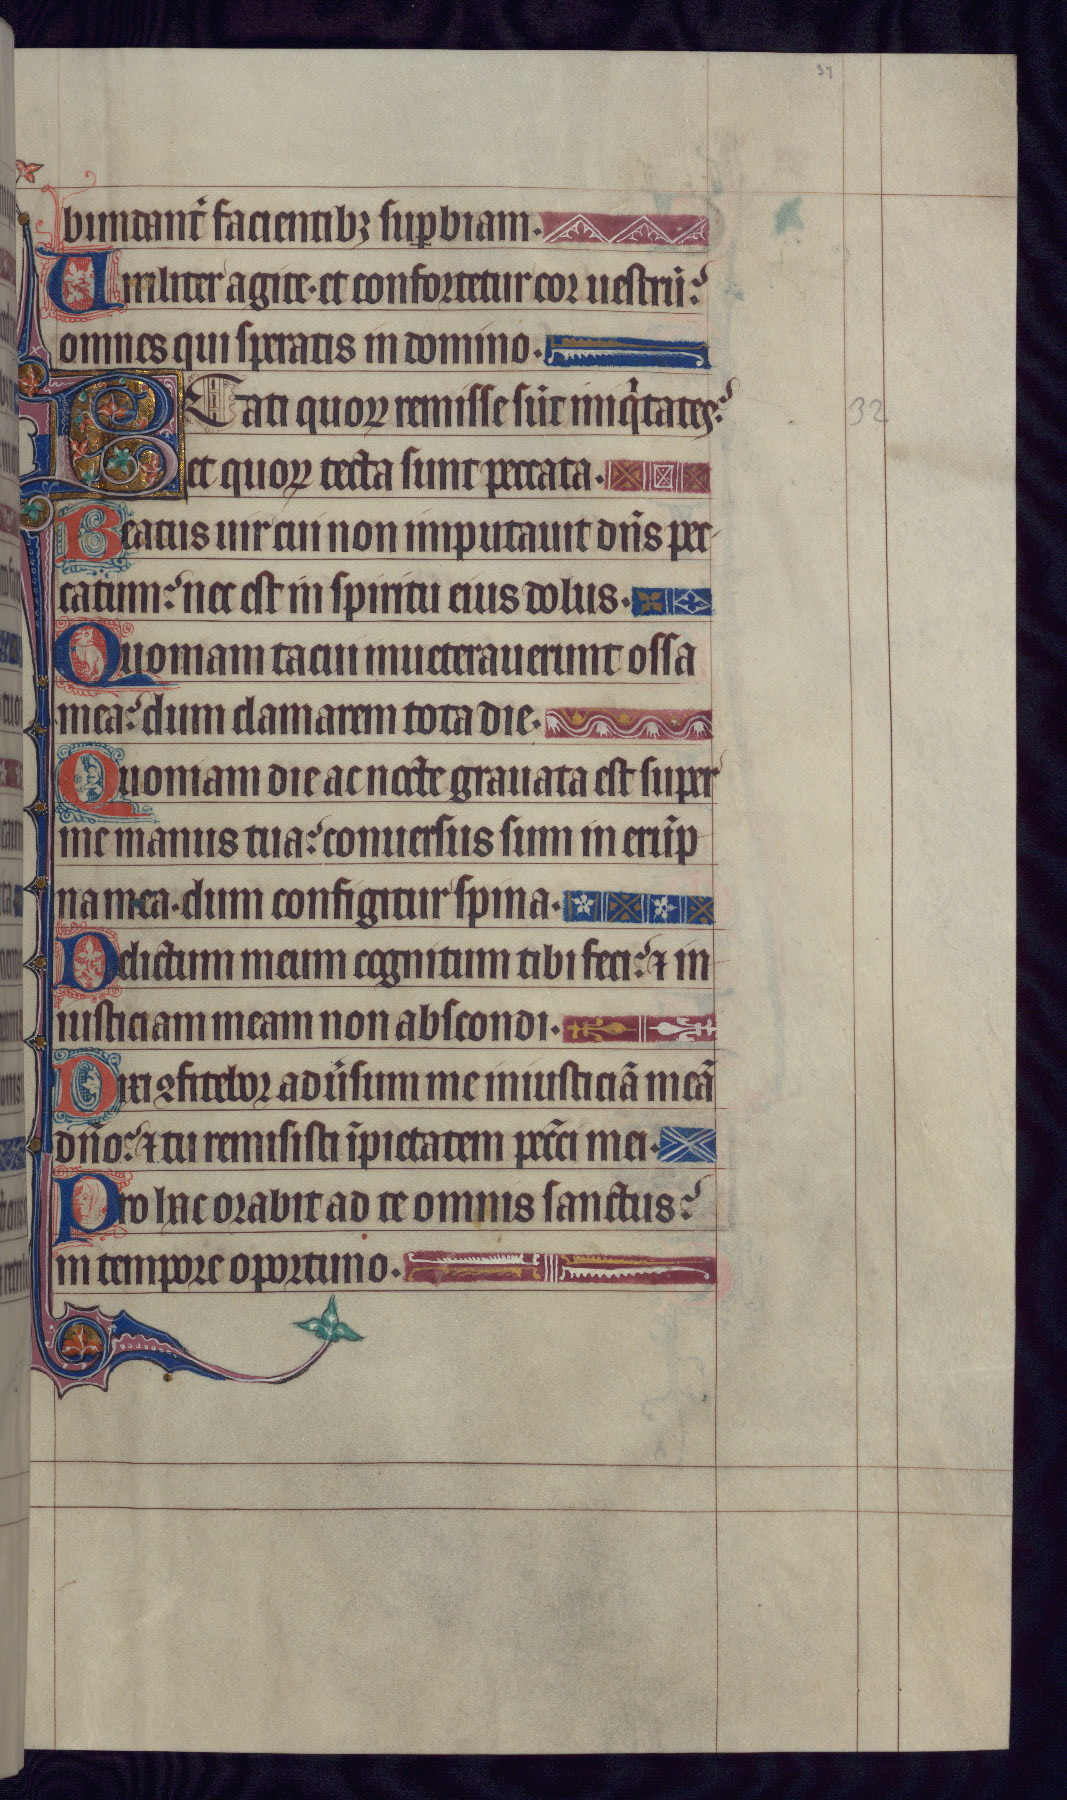 37
bundant᷑ facientibꝫ suꝑbiam.
Uiriliter agite. et confortetur cor uestrū:
omnes qui speratis in domino.
BEati quoꝝ remisse sūt iniq̇tates:
32
et quoꝝ tecta sunt peccata.
Beatus uir cui non imputauit dn̄s pec
catum: nec est in spiritu eius dolus.
Quoniam tacui inueterauerunt ossa
mea: dum clamarem tota die.
Quoniam die ac nocte grauata est super
me manus tua: conuersus sum in erūp
na mea. dum configitur spina.
Delictum meum cognitum tibi feci: ⁊ in
iusticiam meam non abscondi.
Dixi ꝯfitebor adūsum me iniusticiā meā
dn̄o: ⁊ tu remisisti īpietatem pcc̄i mei.
Pro hac orabit ad te omnis sanctus:
in tempore oportuno.